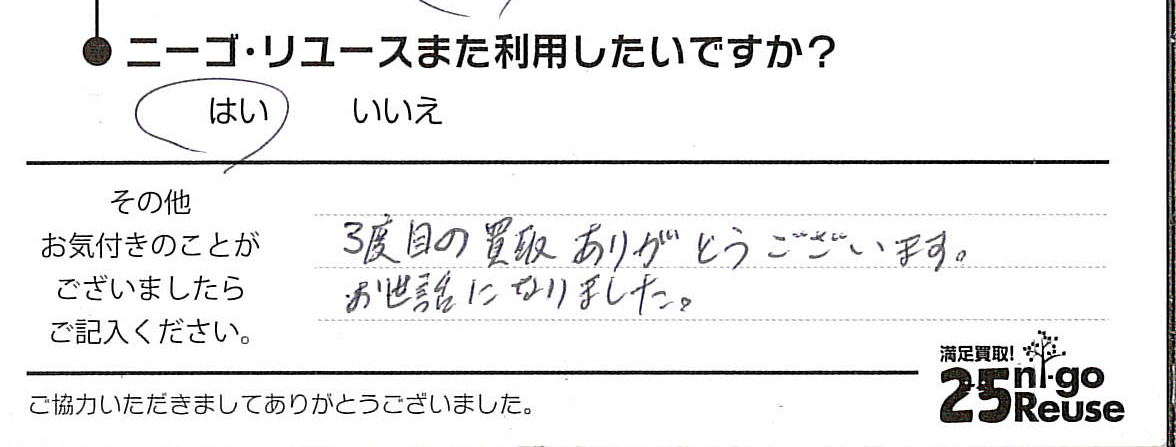 ニーゴ・リユースまた利用したいですか？
はい いいえ
その他
お気付きのことが
ございましたら
ご記入ください。
3度目の買取ありがとうございます。
お世話になりました。
満足買取!
25 ni-go
Reuse
ご協力いただきましてありがとうございました。